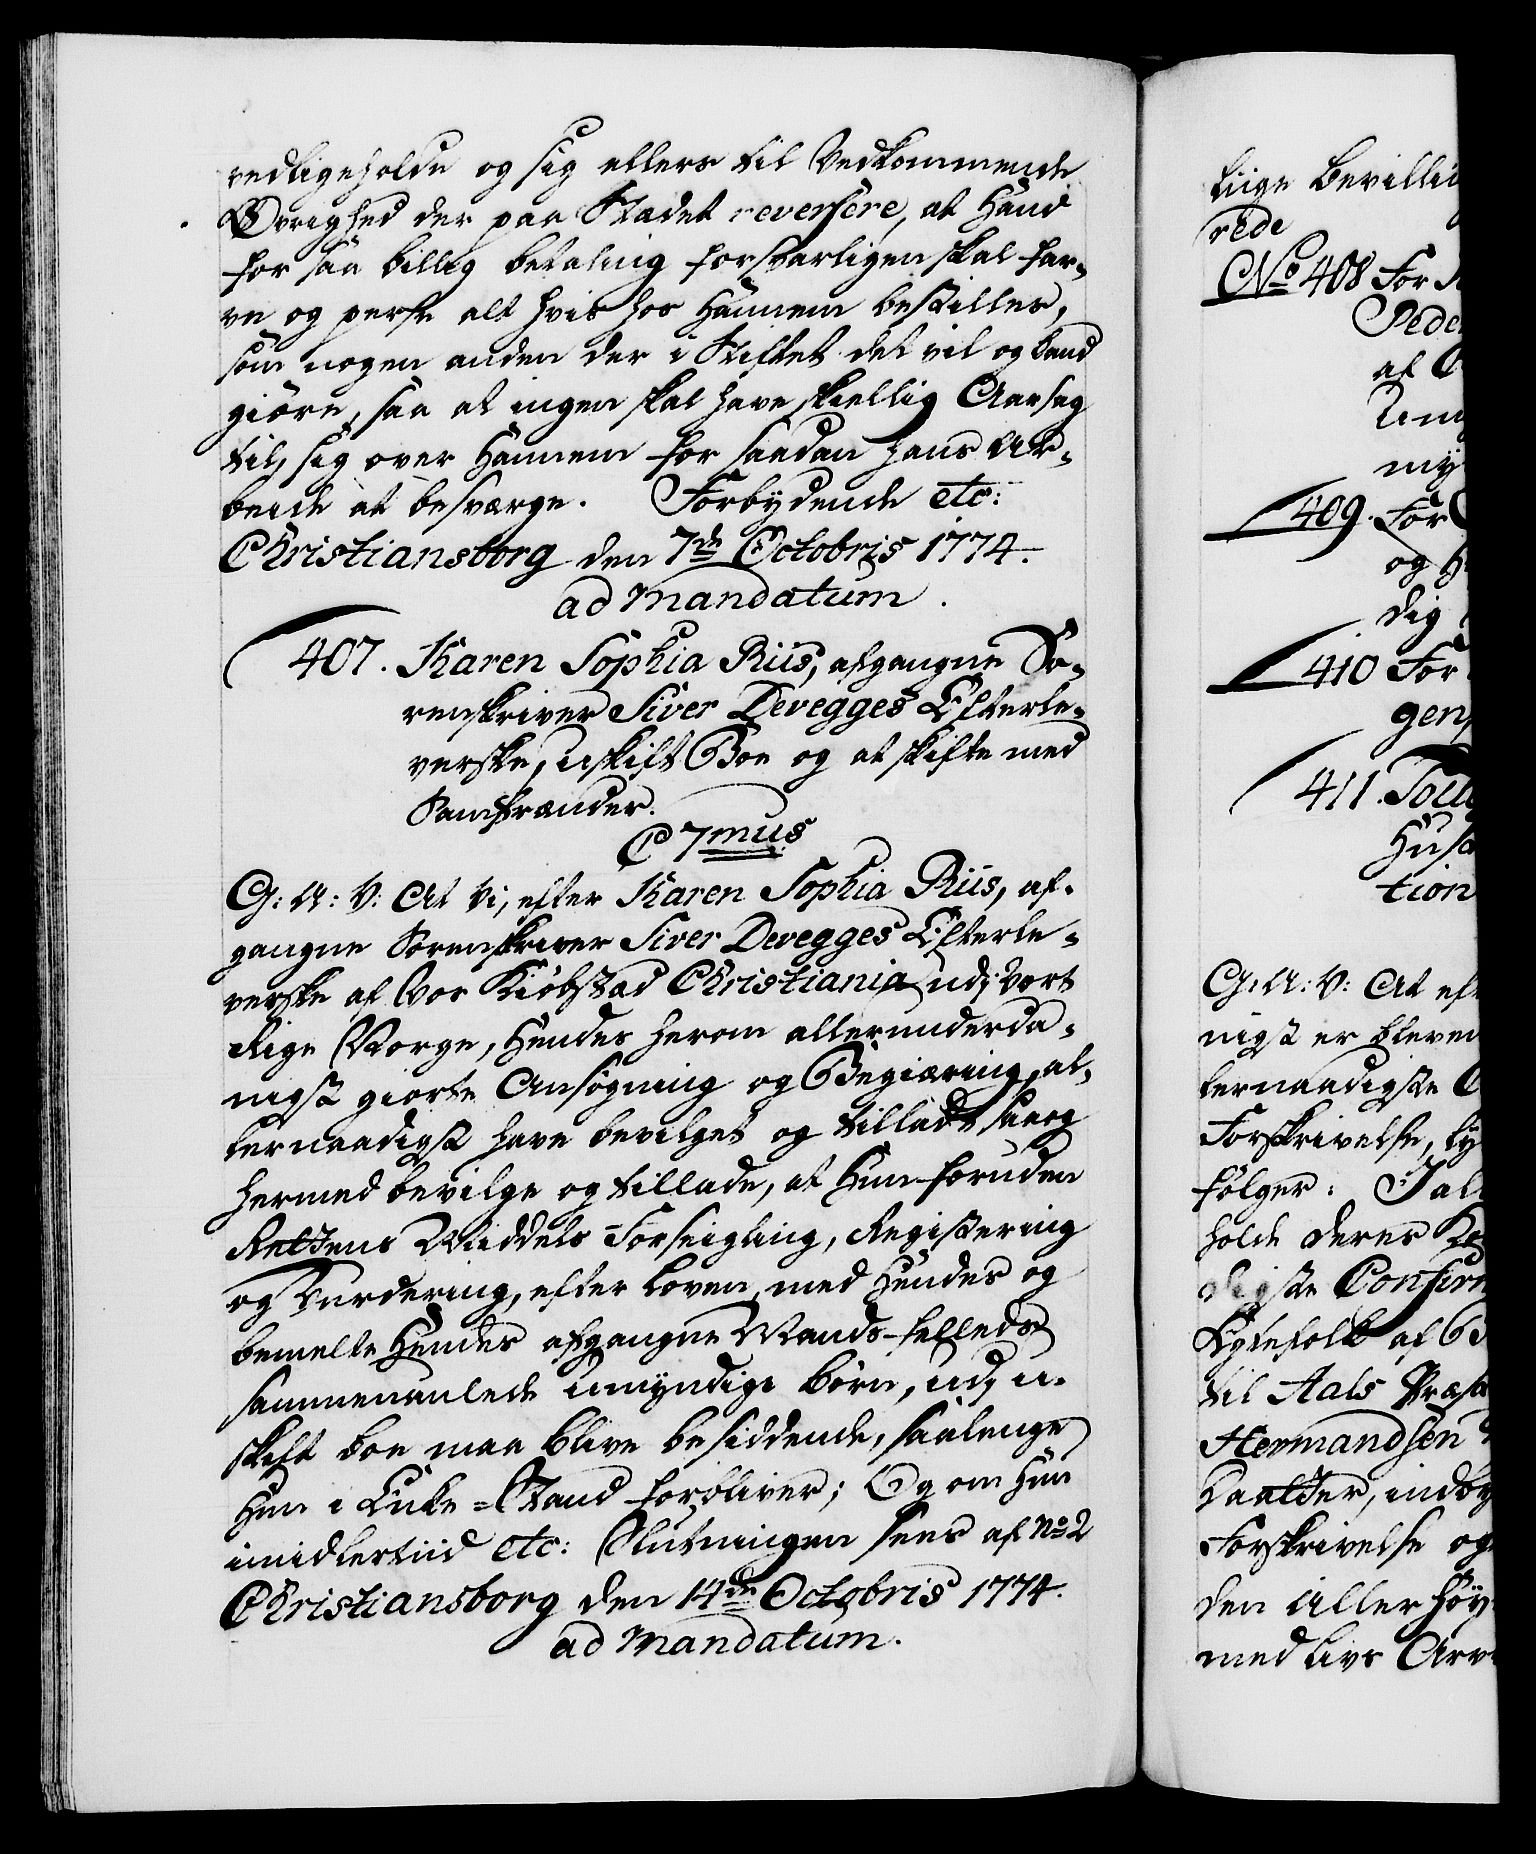 vedligeholde og sig ellers til Vedkommende
Øvrighed der paa Stædet reversere, at Hand
for saa billig betaling forsvarligen skal far-
ve og perse alt hvis hos Hannem bestilles,
som nogen anden der i Stiftet det vil og kand
giöre, saa at ingen skal have skiellig Aarsag
til, sig over Hannem for saadan hans Ar-
beide at besværge. Forbydende etc:
Christiansborg den 7de Octobris 1774.
ad Mandatum.
407. Karen Sophia Riis, afgangne So-
renskriver Siver Devegges Efterle-
verske, uskift Boe og at skifte med
Samfrænder.
C 7mus
G: A: V: At Vi, efter Karen Sophia Riis, af-
gangne Sorenskriver Siver Devegges Efterle-
verske af Vor Kiöbstad Christiania udi Vort
Rige Norge, Hendes herom allerunderda-
nigst giorte Ansögning og Begiæring, al-
lernaadigst have bevilget og tilladt, saa og
hermed bevilge og tillade, at Hun foruden
Rettens Middels Forseigling, Registering
og Vurdering, efter Loven, med Hendes og
bemelte Hendes afgangne Mands fælleds
sammenavlede umyndige Börn, udi u-
skift boe maa blive besiddende, saalenge
Hun i Enke-Stand forbliver; Og om Hun
imidlertiid etc: Slutningen sees af No 2
Christiansborg den 14de Octobris 1774.
ad Mandatum.
liige Bevilli
rede
No 408 For
Pede
af
Un
my
409. For
og H
dig
410 For
gen
411.
Hus
tion
G: A: V: At eft
nigst er bleven
lernaadigste
Forskrivelse, ly
fölger:
holde deres
digste Confirm
Egtefolk af
til Aals Præst
Hermandsen
Daatter, indby
Forskrivelse og
den Aller höy
med Livs Arv